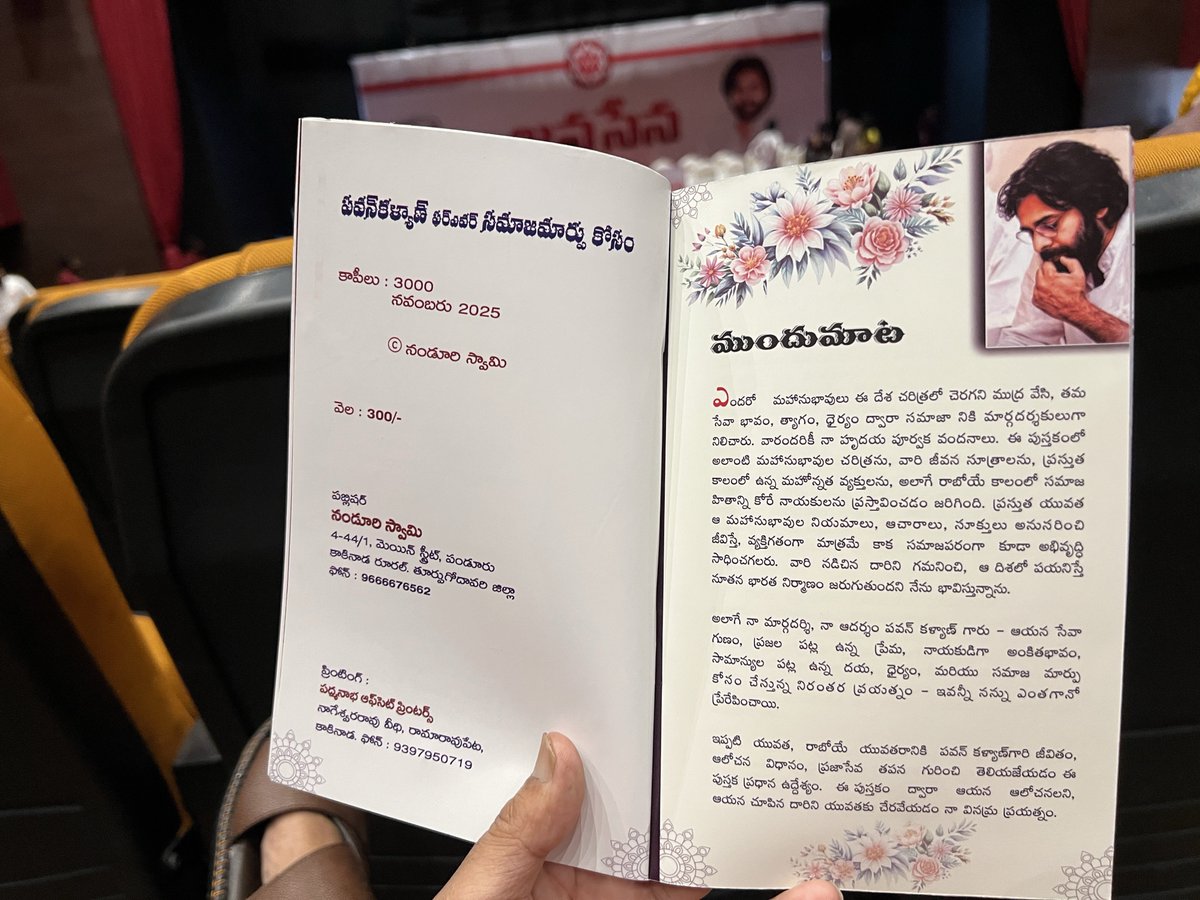 జనసేన
పవన్‌కళ్యాణ్ ఫర్ఎవర్ సమాజమార్పు కోసం
కాపీలు : 3000
నవంబరు 2025
© నండూరి స్వామి
వెల : 300/-
పబ్లిషర్
నండూరి స్వామి
4-44/1, మెయిన్ స్ట్రీట్, పండూరు
కాకినాడ రూరల్. తూర్పుగోదావరి జిల్లా
ఫోన్ : 9666676562
ప్రింటింగ్ :
పద్మనాభ ఆఫ్‌సెట్ ప్రింటర్స్
నాగేశ్వరరావు వీధి, రామారావుపేట,
కాకినాడ. ఫోన్ : 9397950719
ముందుమాట
ఎందరో మహానుభావులు ఈ దేశ చరిత్రలో చెరగని ముద్ర వేసి, తమ
సేవా భావం, త్యాగం, ధైర్యం ద్వారా సమాజా నికి మార్గదర్శకులుగా
నిలిచారు. వారందరికీ నా హృదయ పూర్వక వందనాలు. ఈ పుస్తకంలో
అలాంటి మహానుభావుల చరిత్రను, వారి జీవన సూత్రాలను, ప్రస్తుత
కాలంలో ఉన్న మహోన్నత వ్యక్తులను, అలాగే రాబోయే కాలంలో సమాజ
హితాన్ని కోరే నాయకులను ప్రస్తావించడం జరిగింది. ప్రస్తుత యువత
ఆ మహానుభావుల నియమాలు, ఆచారాలు, సూక్తులు అనుసరించి
జీవిస్తే, వ్యక్తిగతంగా మాత్రమే కాక సమాజపరంగా కూడా అభివృద్ధి
సాధించగలరు. వారి నడిచిన దారిని గమనించి, ఆ దిశలో పయనిస్తే
నూతన భారత నిర్మాణం జరుగుతుందని నేను భావిస్తున్నాను.
అలాగే నా మార్గదర్శి, నా ఆదర్శం పవన్ కళ్యాణ్ గారు – ఆయన సేవా
గుణం, ప్రజల పట్ల ఉన్న ప్రేమ, నాయకుడిగా అంకితభావం,
సామాన్యుల పట్ల ఉన్న దయ, ధైర్యం, మరియు సమాజ మార్పు
కోసం చేస్తున్న నిరంతర ప్రయత్నం – ఇవన్నీ నన్ను ఎంతగానో
ప్రేరేపించాయి.
ఇప్పటి యువత, రాబోయే యువతరానికి పవన్ కళ్యాణ్‌గారి జీవితం,
ఆలోచన విధానం, ప్రజాసేవ తపన గురించి తెలియజేయడం ఈ
పుస్తక ప్రధాన ఉద్దేశ్యం. ఈ పుస్తకం ద్వారా ఆయన ఆలోచనలని,
ఆయన చూపిన దారిని యువతకు చేరవేయడం నా వినమ్ర ప్రయత్నం.